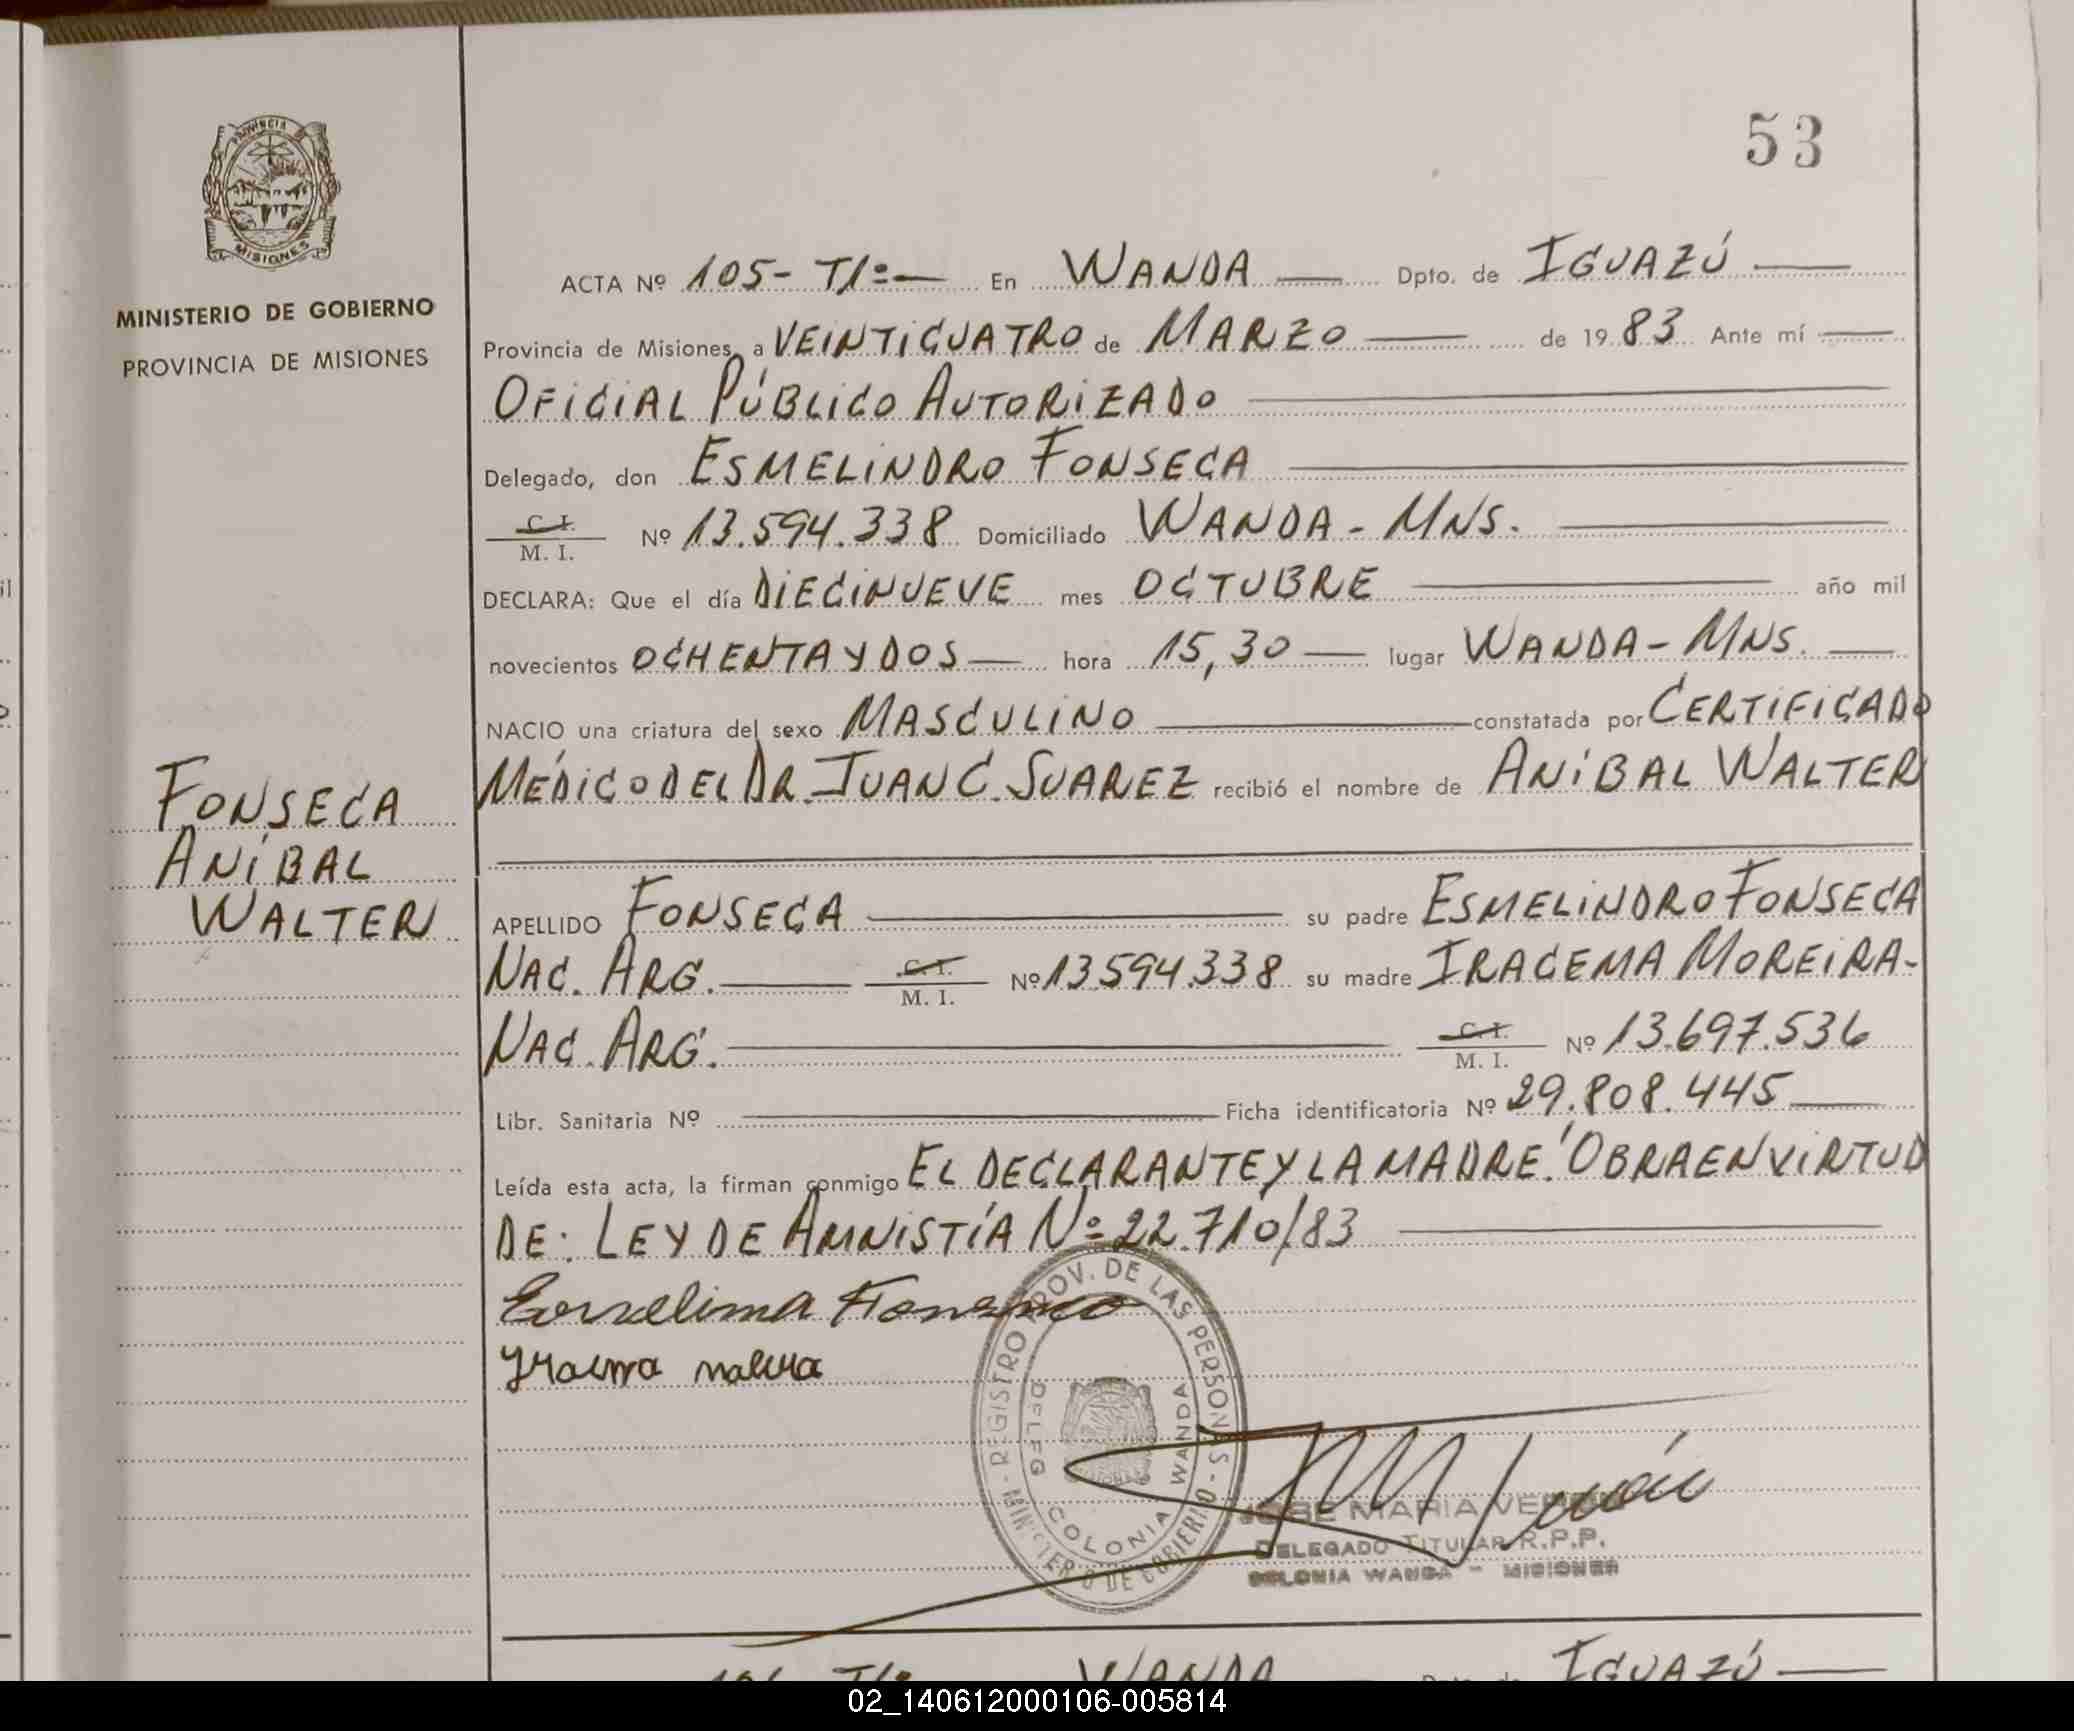 53
PROVINCIA
MISIONES
MINISTERIO DE GOBIERNO
PROVINCIA DE MISIONES
ACTA Nº 105- T1º- En WANDA Dpto. de IGUAZÚ
Provincia de Misiones, a VEINTICUATRO de MARZO de 1983 Ante mí
OFICIAL PÚBLICO AUTORIZADO
Delegado, don ESMELINDRO FONSECA
C. I.
M. I. Nº 13.594.338 Domiciliado WANDA - MNS.
DECLARA: Que el día DIECINUEVE mes OCTUBRE año mil
novecientos OCHENTA Y DOS hora 15,30 lugar WANDA - MNS.
NACIO una criatura del sexo MASCULINO constatada por CERTIFICADO
MÉDICO DEL DR. JUAN C. SUAREZ recibió el nombre de ANÍBAL WALTER
FONSECA
ANÍBAL
WALTER
APELLIDO FONSECA su padre ESMELINDRO FONSECA
NAC. ARG. C. I. M. I. Nº 13.594.338 su madre IRACEMA MOREIRA-
NAC. ARG. C. I. M. I. Nº 13.697.536
Libr. Sanitaria Nº Ficha identificatoria Nº 29.808.445
Leída esta acta, la firman conmigo EL DECLARANTE Y LA MADRE.'OBRA EN VIRTUD
DE: LEY DE AMNISTÍA Nº 22.710/83
REGISTRO PROV. DE LAS PERSONAS - MINISTERIO DE GOBIERNO
DELEG. COLONIA WANDA
JOSE MARIA
DELEGADO TITULAR R.P.P.
COLONIA WANDA - MISIONES
WANDA IGUAZÚ
02_140612000106-005814